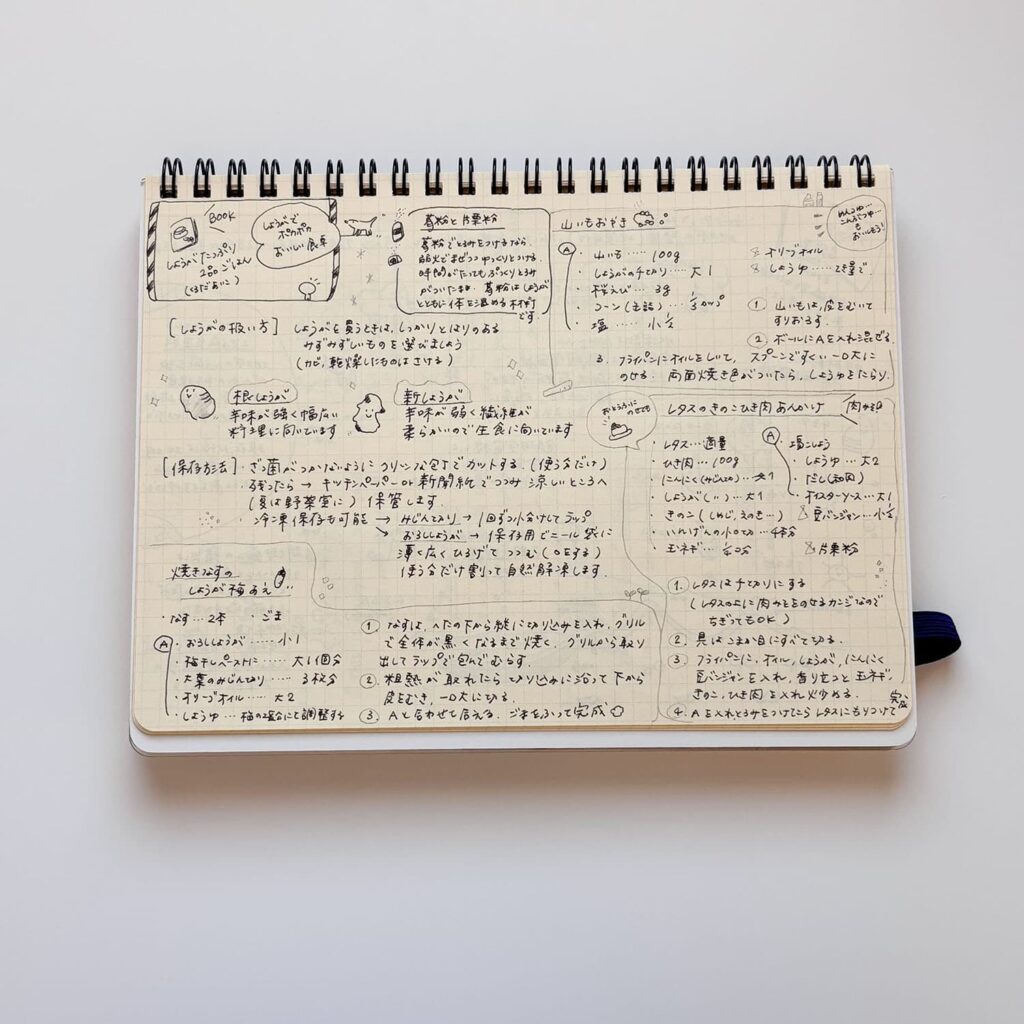 BOOK
しょうがたっぷり
200ごはん
(くろだあいこ)
しょうがで
ポカポカ
おいしい食卓
葛粉と片栗粉
葛粉でとろみをつけるなら、
弱火でまぜつつゆっくりとつける.
時間がたってもぷっくりとろみ
がついたまま. 葛粉はしょうが
とともに体を温める材料
です
[しょうがの扱い方]
しょうがを買うときは、しっかりとはりのある
みずみずしいものを選びましょう
(カビ、乾燥したものはさける)
根しょうが
辛味が強く幅広い
料理に向いています
新しょうが
辛味が弱く繊維が
柔らかいので生食に向いています
[保存方法]・ざつ菌がつかないようにクリーンな包丁でカットする. (使う分だけ)
残ったら → キッチンペーパーor新聞紙でつつみ涼しいところへ
(夏は野菜室に) 保管します.
・冷凍保存も可能 → みじん切り → 1回ずつ小分けしてラップ
おろししょうが → 保存用ビニール袋に
薄く広くひろげてつつむ
使う分だけ割って自然解凍します.
焼きなすの
しょうが梅あえ
・なす…2本 ・ごま
Ⓐ・おろししょうが……小1
・梅干しペーストに……大1個分
・大葉のみじん切り……3枚分
・オリーブオイル……大2
・しょうゆ…梅の塩分にて調整する
① なすは、へたの下から縦に切り込みを入れ、グリル
で全体が黒くなるまで焼く. グリルから取り
出してラップで包んでむらす.
② 粗熱が取れたら切り込みに沿って下から
皮をむき、一口大に切る.
③ Aと合わせて和える. ごまをふって完成
山いもおやき
めんつゆ…
こんぶつゆ…
も
おいしそう!
Ⓐ・山いも……100g
・しょうがの千切り…大1
・桜えび…3g
・コーン(缶詰)…⅓カップ
・塩……小½
& オリーブオイル
& しょうゆ……てき量で
① 山いもは、皮をむいて
すりおろす.
② ボールにAを入れ混ぜる.
3. フライパンにオイルをしいて、スプーンですくい一口大に
のせる. 両面焼き色がついたら、しょうゆをたらり
おとうふに
のせても
レタスのきのこひき肉あんかけ
・レタス…適量
・ひき肉…100g
・にんにく(みじん切り)…大1
・しょうが(〃)…大1
・きのこ (しめじ、えのき…)
・いんげんの小口切…4本分
・玉ネギ…½コ分
Ⓐ・塩こしょう
・しょうゆ…大2
・だし(和風)
・オイスターソース…大1
& 豆バンジャン…小½
& 片栗粉
①. レタスは千切りにする
(レタスの上に肉みそをのせるカンジなので
ちぎってもOK)
②. 具はこまか目にすべて切る.
③ フライパンに、オイル、しょうが、にんにく
豆バンジャンを入れ、香り立つと玉ネギ、
きのこ、ひき肉を入れ火炒める.
④. Aを入れとろみをつけたらレタスにもりつけて
完成